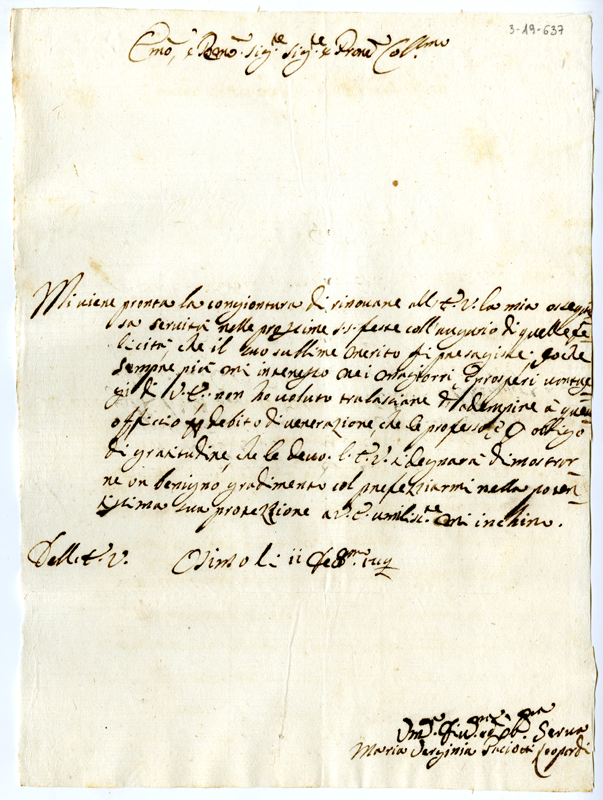 3-19-637
Emo, e Rmo Sig.re Sig.re e Prone Coll.mo
Mi viene pronta la congiontura di rinovare all'E.V. la mia ossequio
sa servitù nelle prossime S.S. feste coll'augurio di quelle fe
licità, che il suo sublime merito si presagisce,
sempre più mi interesso nei maggiori, e prosperi vantag
gi di V.E. non ho voluto tralasciare d'adempire à quest
officio debito di venerazione che le professo, obligo
di gratitudine, che le devo. L'E.V. si degnarà di mostrar
ne un benigno gradimento col prefezziarmi nella poten
tissima sua protezzione a V.E. umiliss.te mi inchino.
Dell'E.V. Osimo li 11
Serva
Maria Verginia Leopardi